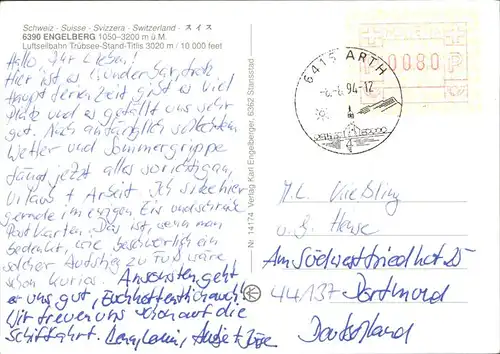 Schweiz - Suisse - Svizzera - Switzerland - スイス
6390 ENGELBERG 1050-3200 m ü M.
Luftseilbahn Trübsee-Stand-Titlis 3020 m / 10 000 feet
Hallo, Ihr Lieben!
Hier ist es wunderbar, trotz
Hauptferienzeit gibt es viel
Platz und es gefällt uns sehr
gut. Nach anfänglich schlechtem
Wetter und Sommergrippe
fängt jetzt alles
Urlaub + Arbeit. Ich sitze hier
gerade im ewigen Eis und schreibe
Postkarten. Das ist, wenn man
bedenkt, wie beschwerlich ein
solcher Aufstieg zu Fuß wäre
schon kurios. Ansonsten geht
es uns gut, Euch hoffentlich auch!
Wir freuen uns schon auf die
Schiffahrt.
Nr. 14174 Verlag Karl Engelberger, 6362 Stansstad
6415 ARTH
94-12
0080
P P
M.L. Kießling
u. G. Hense
Am Südwestfriedhof 25
44137 Dortmund
Deutschland